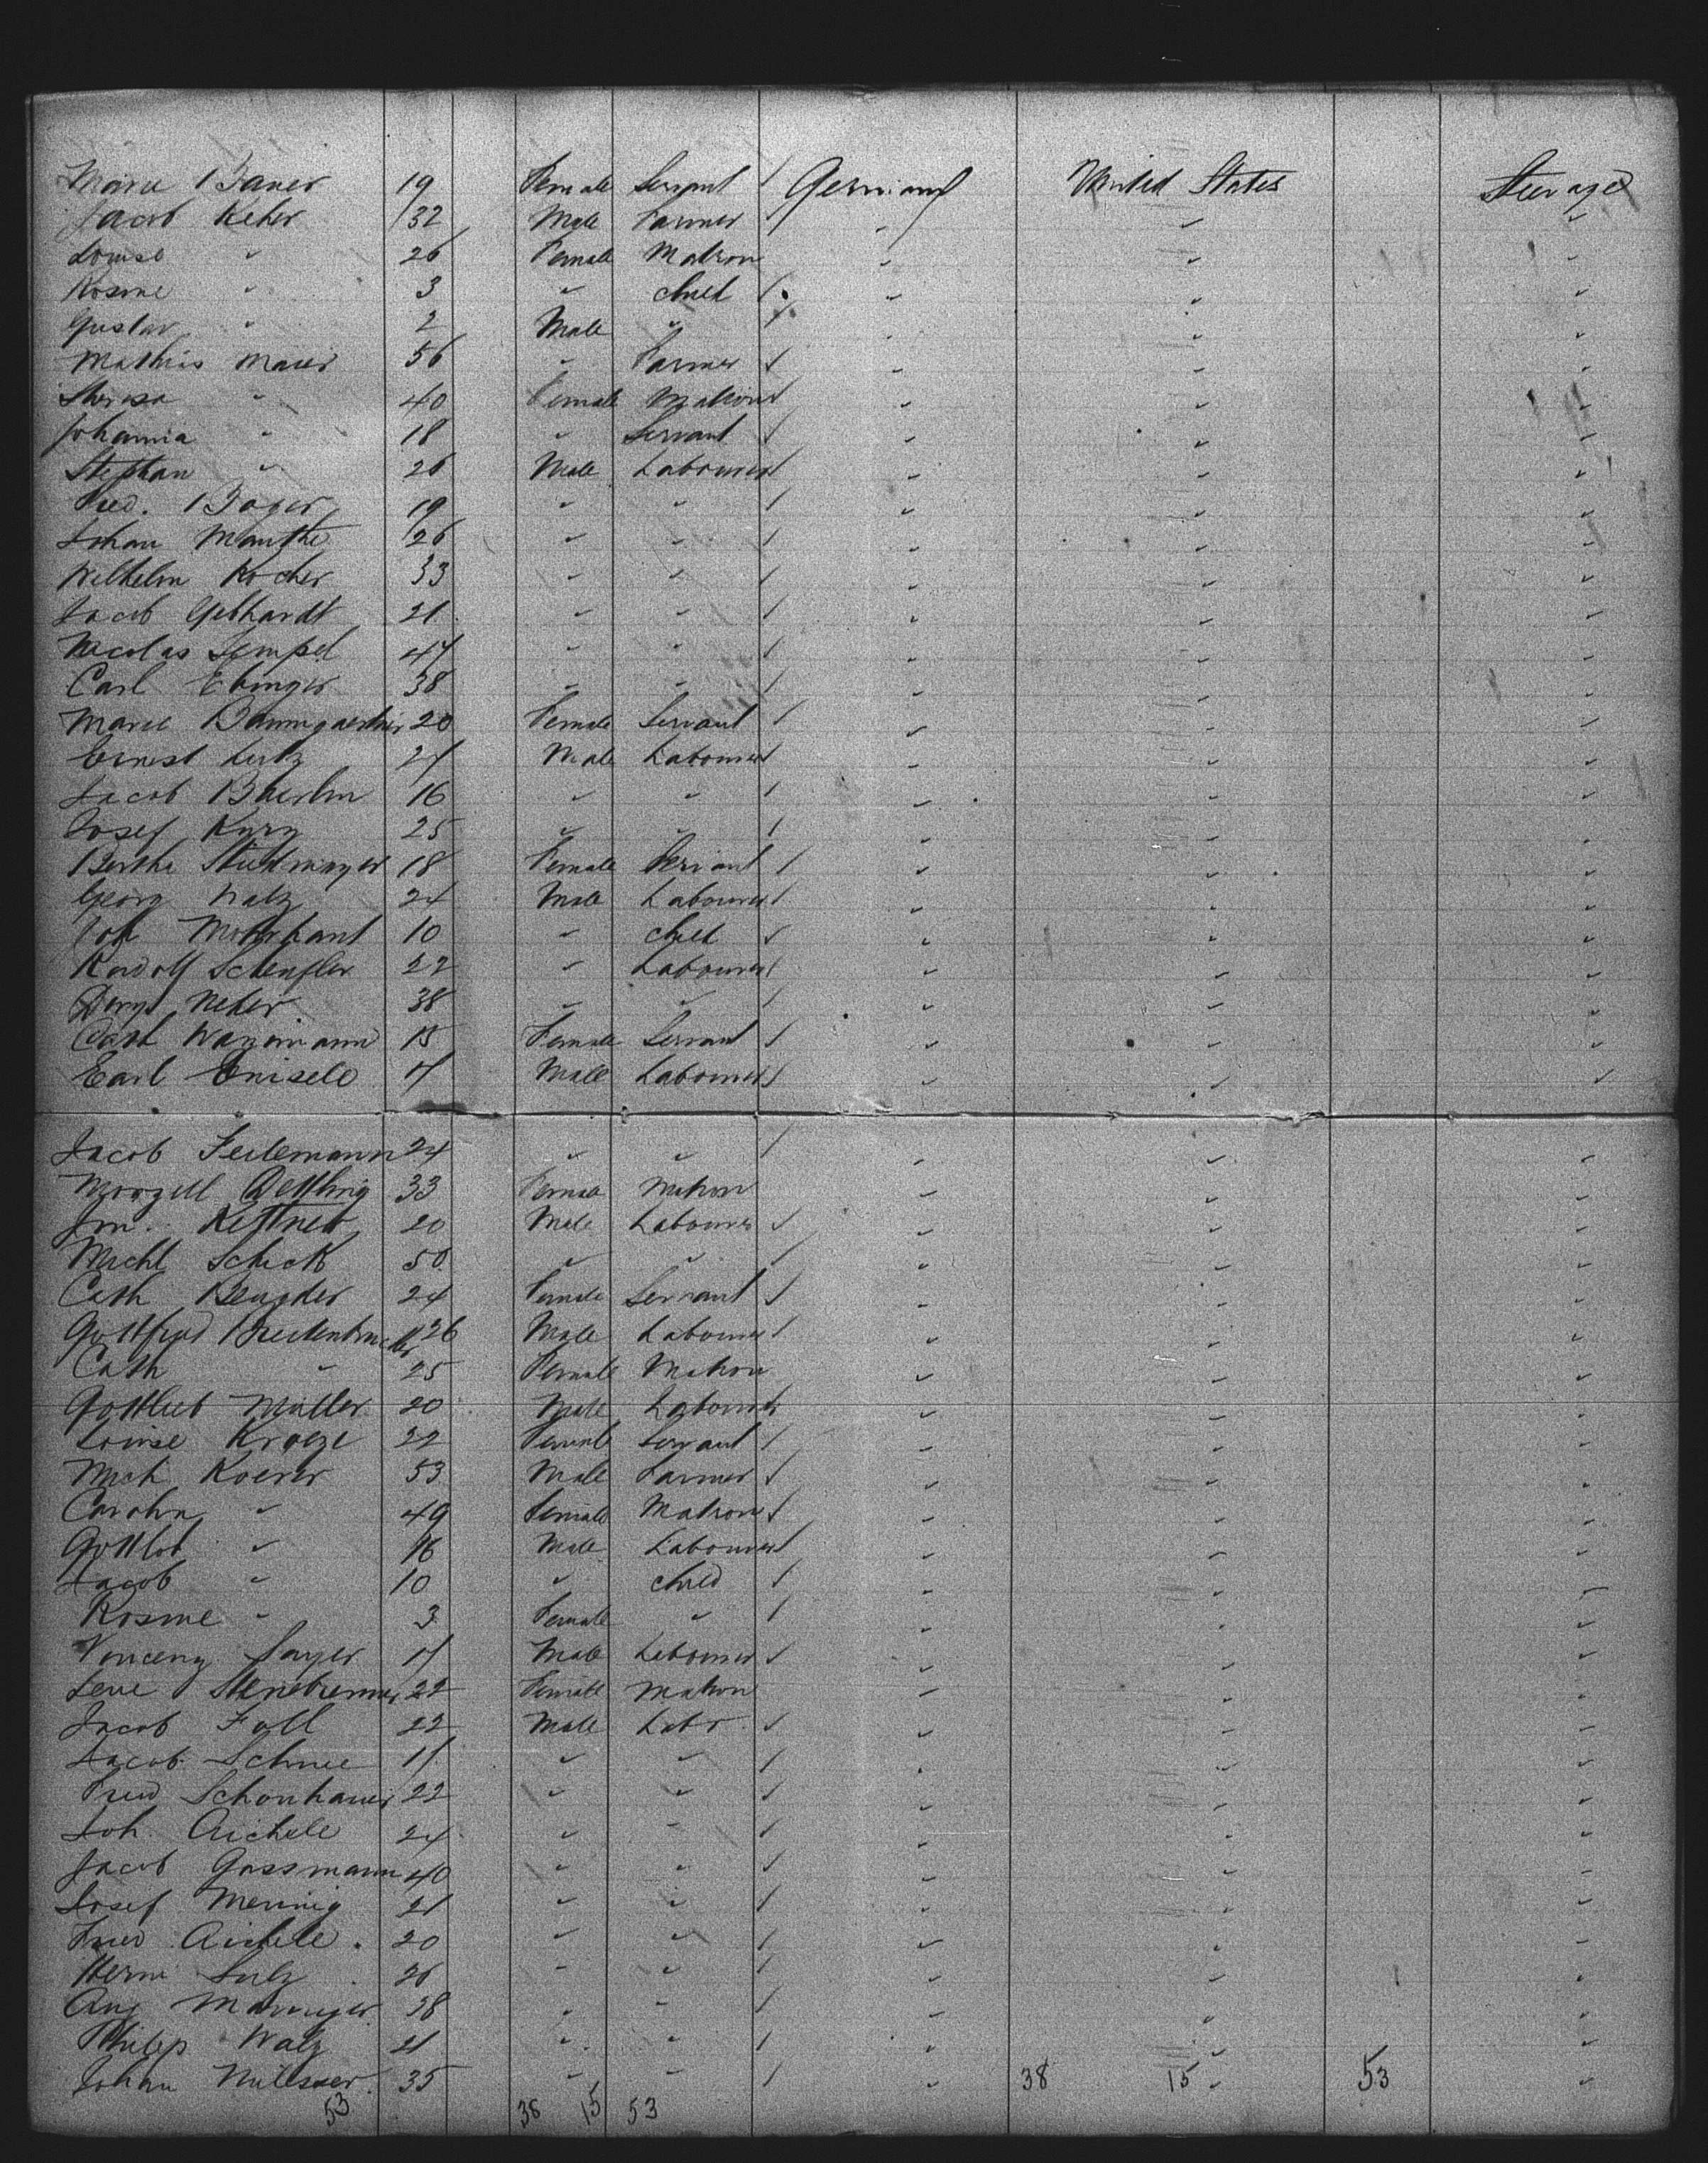 Marie Bauer 19 Female Servant / Germany United States Steerage
Jacob Keher 32 Male Farmer / " " "
Louise " 26 Female Matron " " "
Rosine " 3 " Child / " " "
Gustav " 2 Male " / " " "
Mathis Maier 56 " Farmer / " " "
Theresa " 40 Female Matron / " " "
Johanna " 18 " Servant / " " "
Stephan " 26 Male Labourer / " " "
Fred. Boger 19 " " / " " "
Johan Manthe 26 " " / " " "
Wilhelm Kocher 33 " " / " " "
Jacob Gebhardt 21 " " / " " "
Nicolas Sempel 44 " " / " " "
Carl Ebinger 38 " " / " " "
Marie Baumgaertner 20 Female Servant / " " "
Ernest Lutz 27 Male Labourer / " " "
Jacob Baerlin 16 " " / " " "
Josef Kurz 25 " " / " " "
Bertha 18 Female Servant / " " "
Georg Walz 24 Male Labourer / " " "
Joh 10 " Child / " " "
Rudolf Schenfler 22 " Labourer / " " "
Neher 38 " " / " " "
Cath Wazmann 15 Female Servant / " " "
Earl Enisele 17 Male Labourer / " " "
Jacob Feilemann 24 " " / " " "
Dettling 33 Female Matron " " "
Jm. Kettner 20 Male Labourer / " " "
Michl Schick 50 " " / " " "
Cath Bengder 24 Female Servant / " " "
Gottfried Breitenbrucker 26 Male Labourer / " " "
Cath " 25 Female Matron " " "
Gottlieb Müller 20 Male Labourer / " " "
Louise Kraeze 22 Female Servant / " " "
Mich Koerer 53 Male Farmer / " " "
Carolin " 49 Female Matron / " " "
Gottlob " 16 Male Labourer / " " "
Jacob " 10 " Child / " " "
Rosine " 3 Female " / " " "
Vincenz Sayer 17 Male Labourer / " " "
Lene 22 Female Matron " " "
Jacob Foll 22 Male Labr / " " "
Jacob Schnee 11 " " / " " "
Fred Schonhauer 22 " " / " " "
Joh. Aichele 24 " " / " " "
Jacob Gassmann 40 " " / " " "
Josef Mennig 21 " " / " " "
Fred Aichele 20 " " / " " "
Herm Sulz 26 " " / " " "
Aug 38 " " / " " "
Philip Walz 21 " " / " " "
Johan 35 " " / " 38 15 " 53 "
53 38 15 53